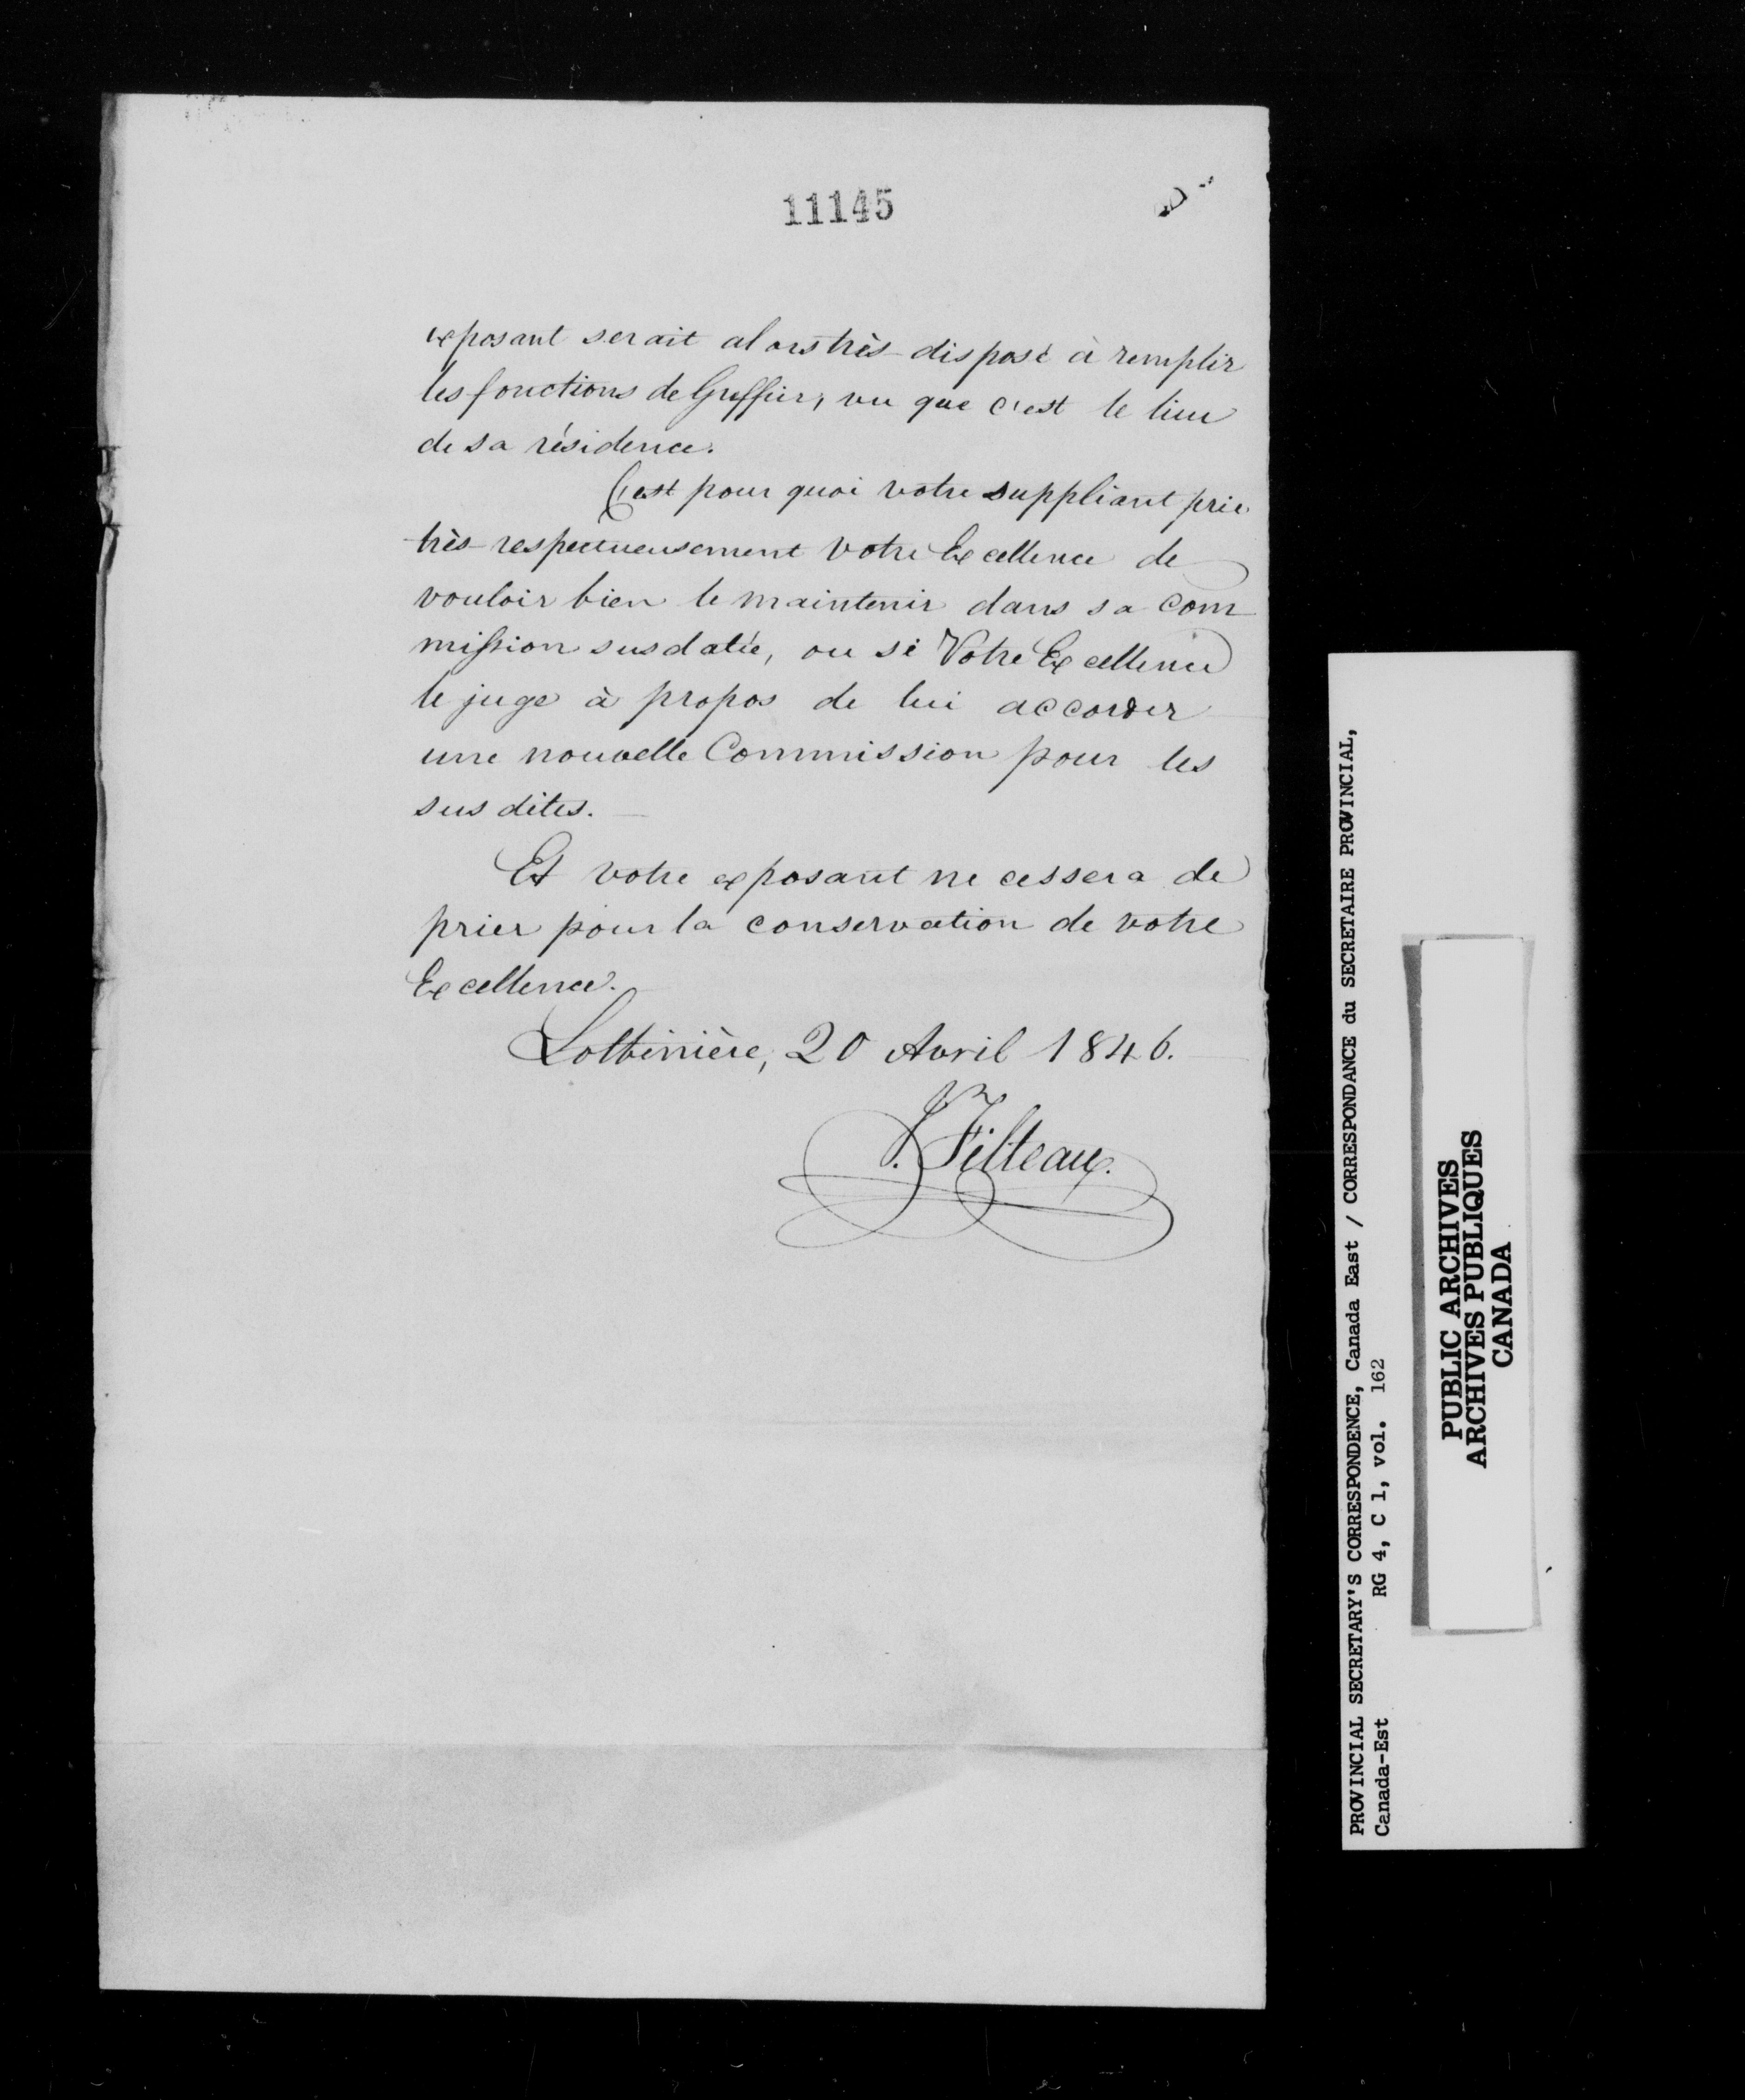 11145
exposant serait alors très disposé à remplir
les fonctions de Greffier, vu que c'est le lieu
de sa résidence.
C'est pour quoi votre suppliant prie
très respectueusement votre Excellence de
vouloir bien le maintenir dans sa com
mission susdatée, ou si Votre Excellence
le juge à propos de lui accorder
une nouvelle Commission pour les
sus dites.
Et votre exposant ne cessera de
prier pour la conservation de votre
Excellence.
Lotbinière, 20 Avril 1846.
J. Filteau.
PROVINCIAL SECRETARY'S CORRESPONDENCE, Canada East / CORRESPONDANCE du SECRETAIRE PROVINCIAL,
Canada-Est RG 4, C 1, vol. 162
PUBLIC ARCHIVES
ARCHIVES PUBLIQUES
CANADA